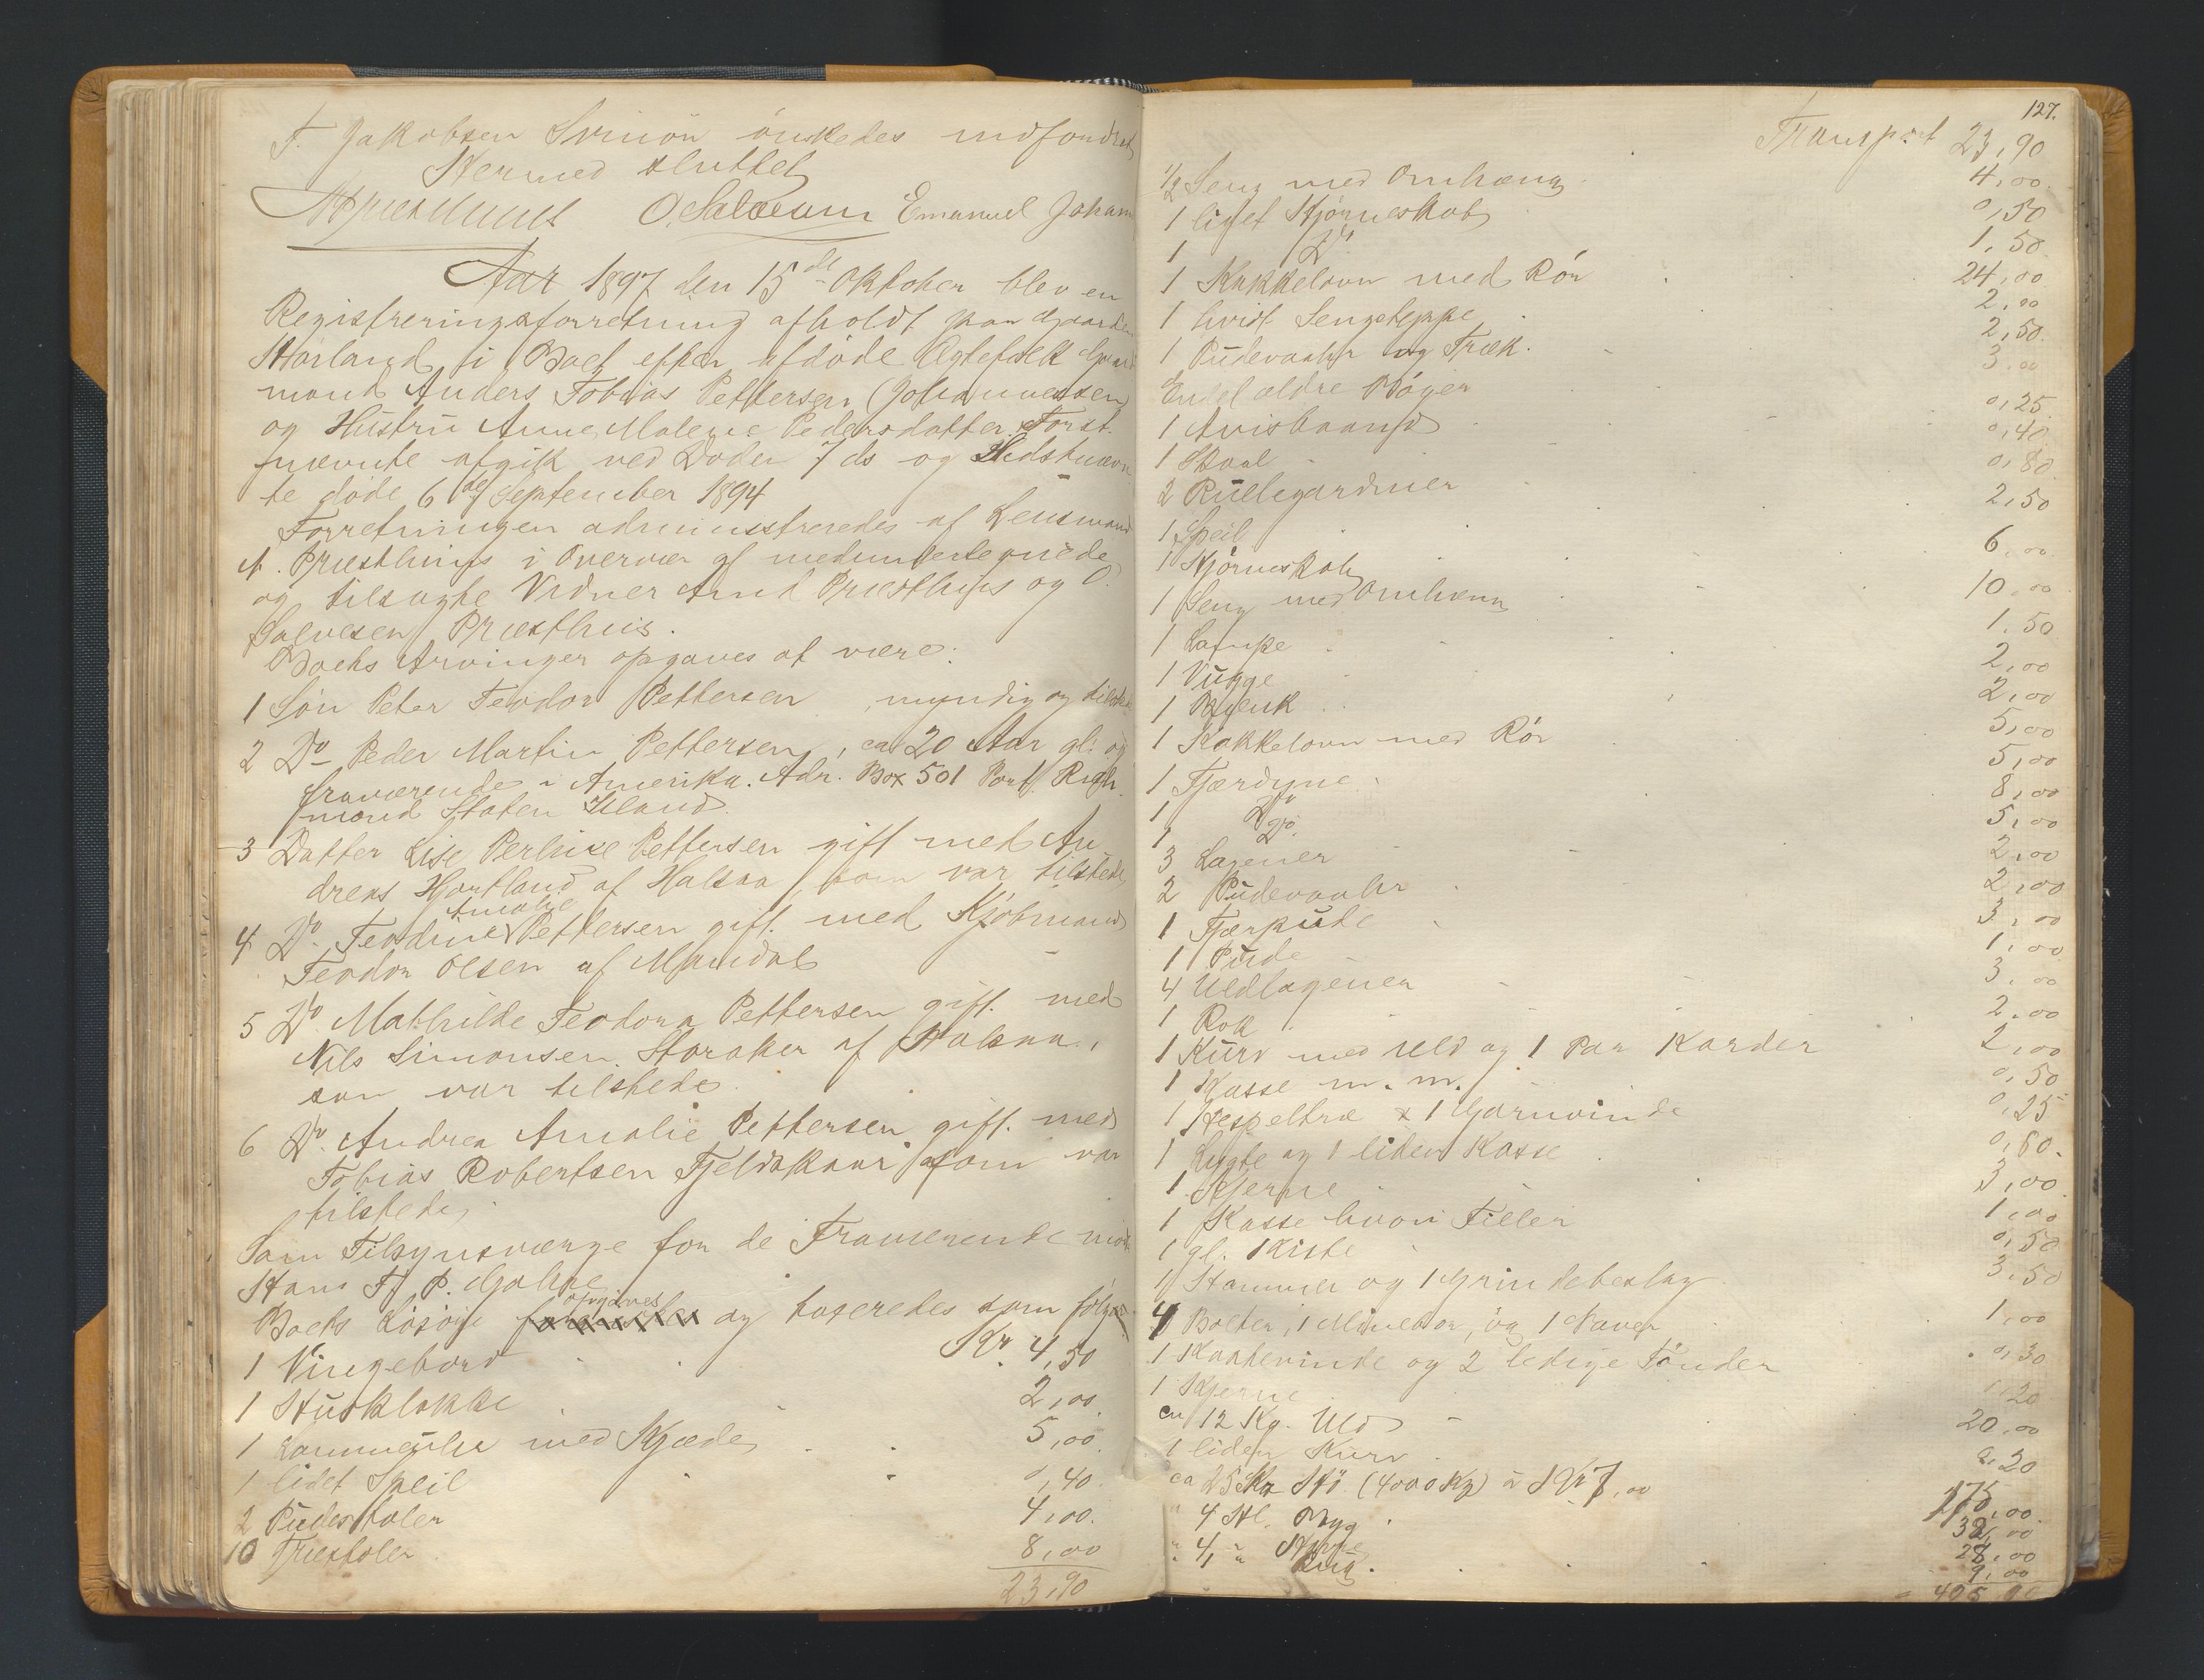 T. Jakobsen Svinön önskedes indfordret
Hermed sluttet
O. Salvesen Emanuel Johann
Aar 1897 den 15de Oktober blev en
Registreringsforretning afholdt paa Gaarden
Hörland i Boet efter afdöde Ægtefolk Gaard
mand Anders Tobias Pettersen (Johannessen)
og Hustru Anne Malene Pedersdatter. Först
nævnte afgik ved Döden 7 ds og Sidstnævn
te döde 6te September 1894
Forretningen administreredes af Lensmand
A. Præsthus i Overvær af medundertegnede
og tilsagte Vidner Arnt Præsthus og O.
Salvesen Præsthus.
Boets Arvinger opgaves at være:
1 Sön Peter Teodor Pettersen, myndig og tilstede
2 Do Peder Martin Pettersen, ca 20 Aar gl. og
fraværende i Amerika. Adr. Box 501 Port Rich
mond Staten Island
3 Datter Lise Perline Pettersen gift med An
dreas Hortland af Halsaa, som var tilstede
Amalie
4 Do. Teodine Pettersen gift med Kjöbmand
Teodor Olsen af Mandal
5 Do. Mathilde Teodora Pettersen gift med
Nils Simonsen Storaker af Halsaa,
som var tilstede
6 Do. Andrea Amalie Pettersen gift med
Tobias Robertsen Fjeldskaar som var
tilstede,
Som Tilsynsværge for de Fraværende mödte
Hans Fj P. Gahre
opgaves
Boets Lösöre og taxeredes som fölger
1 Vingebord Kr. 4,50
1 Husklokke 2,00
1 Lommeuhr med Kjæde 5,00
1 lidet Speil 0,40
2 Pudestoler 4,00.
10 Træstoler 8,00
23,90
127.
Transport 23,90
1/2 Seng med Omhæng 4,00
1 lidet Hjörneskab 0,50
1 Do 1,50
1 Kakkelovn med Rör 24,00
1 hvidt Sengeteppe 2,00
1 Pudevaahr og Træk 2,50
Endel ældre Böger 3,00
1 Avisbaand 0,25
1 Skaal 0,40
2 Rullegardiner 0,80
1 Speil 2,50
1 Hjörneskab 6,00
1 Seng med Omhæng 10,00
1 Lampe 1,50
1 Vugge 2,00
1 Bænk 2,00
1 Kakkelovn med Rör 5,00
1 Fjærdyne 5,00
1 Do 8,00
1 Do. 5,00
3 Lagener 2,00
2 Pudevaahr 2,00
1 Fjærpude 3,00
1 Pude 1,00
4 Uldlagener 3,00
1 Rok 2,00
1 Kurv med Uld og 1 Par Karder 2,00
1 Kasse m.m. 0,50
1 Hespeltræ & 1 Garnvinde 0,25
1 Lygte og 1 liden Kasse 0,80.
1 Kjerne 3,00
1 Kasse hvori Filler 1,00
1 gl. Kiste 0,50
1 Hammer og 1 Grindebeslag 3,50
4 Bolter, 1 Minebor, og 1 Naver 1,00
1 Kaabevinde og 2 ledige Tönder 0,30
1 Kjerne 1,20
ca 12 Kg. Uld 20,00
1 liden Kurv 0,20
ca 25 Sk Hö (4000 Kg) à Kr 7,00 175,00.
" 4 Hl. Byg 32,00
" 4 " Havre 28,00
" 1 " Rug. 9,00
405,90